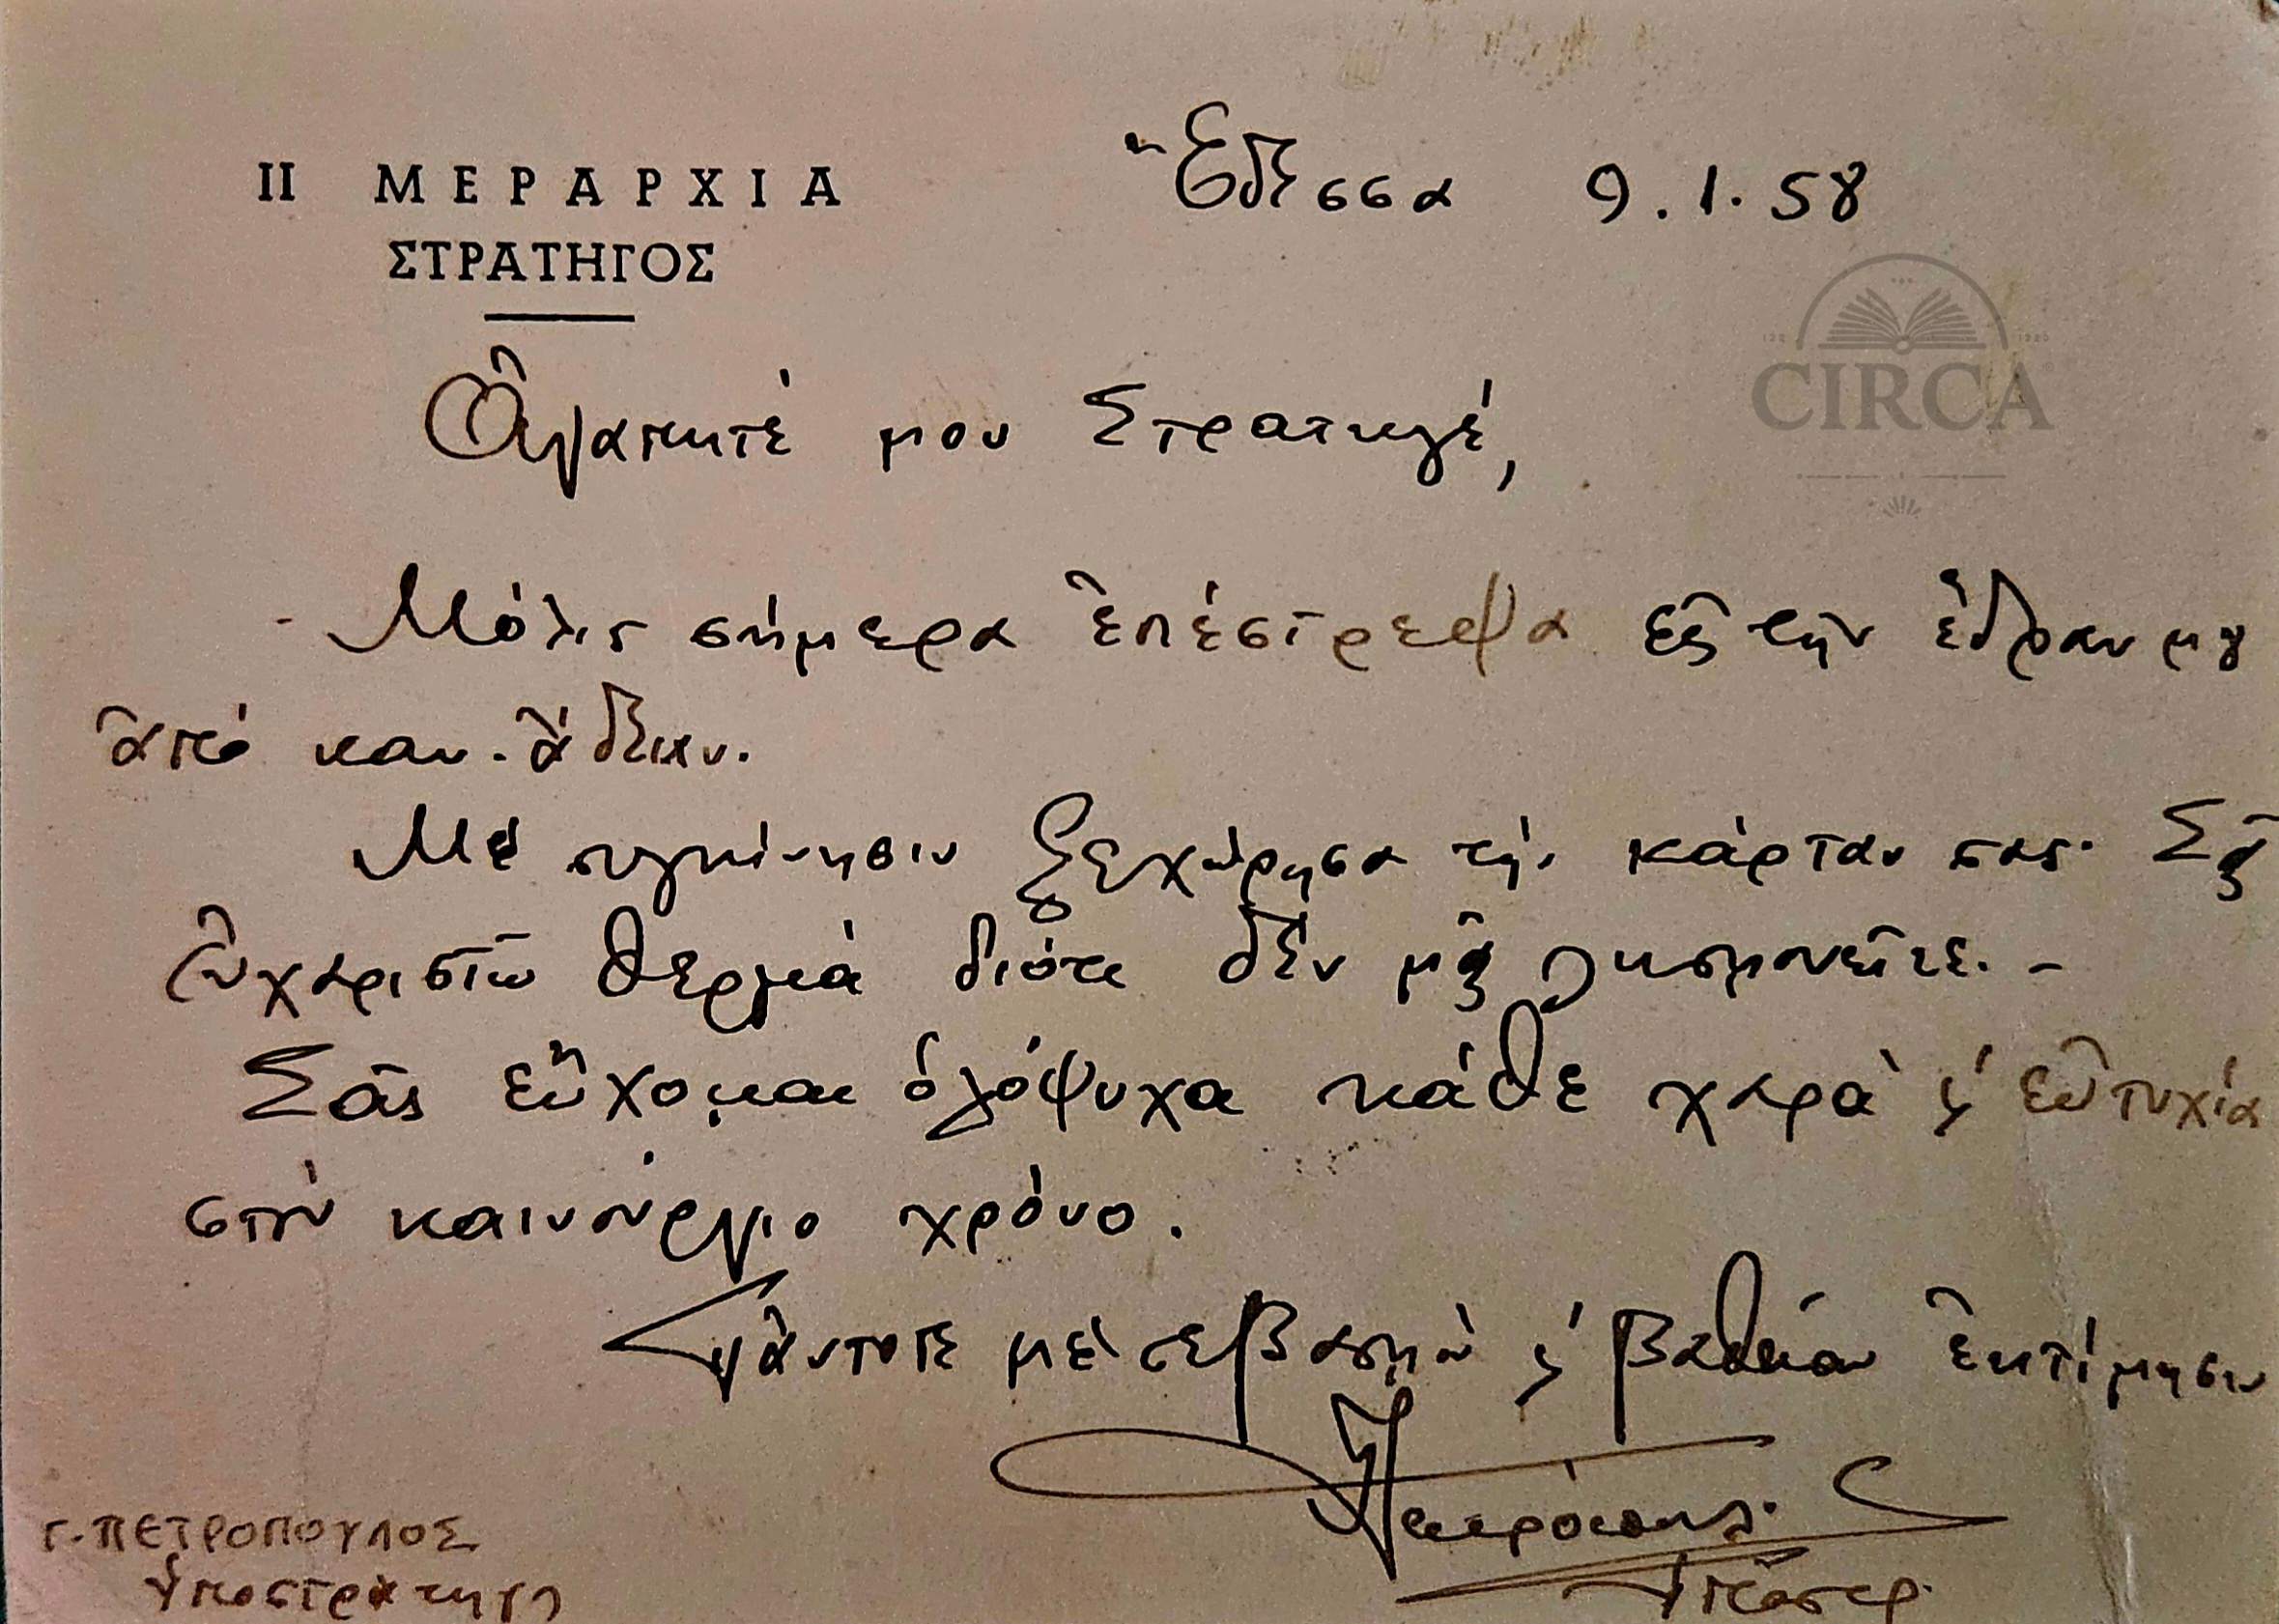 ΙΙ ΜΕΡΑΡΧΙΑ
ΣΤΡΑΤΗΓΟΣ
Ἔδεσσα 9.1.58
CIRCA
Ἀγαπητέ μου Στρατηγέ,
- Μόλις σήμερα ἐπέστρεψα εἰς τὴν ἕδραν μου
ἀπό καν. ἄδειαν.
Μὲ συγκίνησιν ξεχώρησα τήν κάρταν σας. Σᾶς
εὐχαριστῶ θερμά διότι δὲν μᾶς λησμονεῖτε. -
Σᾶς εὔχομαι ὁλόψυχα κάθε χαρά ϗ εὐτυχία
στὸν καινούργιο χρόνο.
Πάντοτε μὲ σεβασμὸ ϗ βαθεῖαν ἐκτίμησιν
Πετρόπουλ.
Ὑποστρ.
Γ. ΠΕΤΡΟΠΟΥΛΟΣ
Ὑποστράτηγος